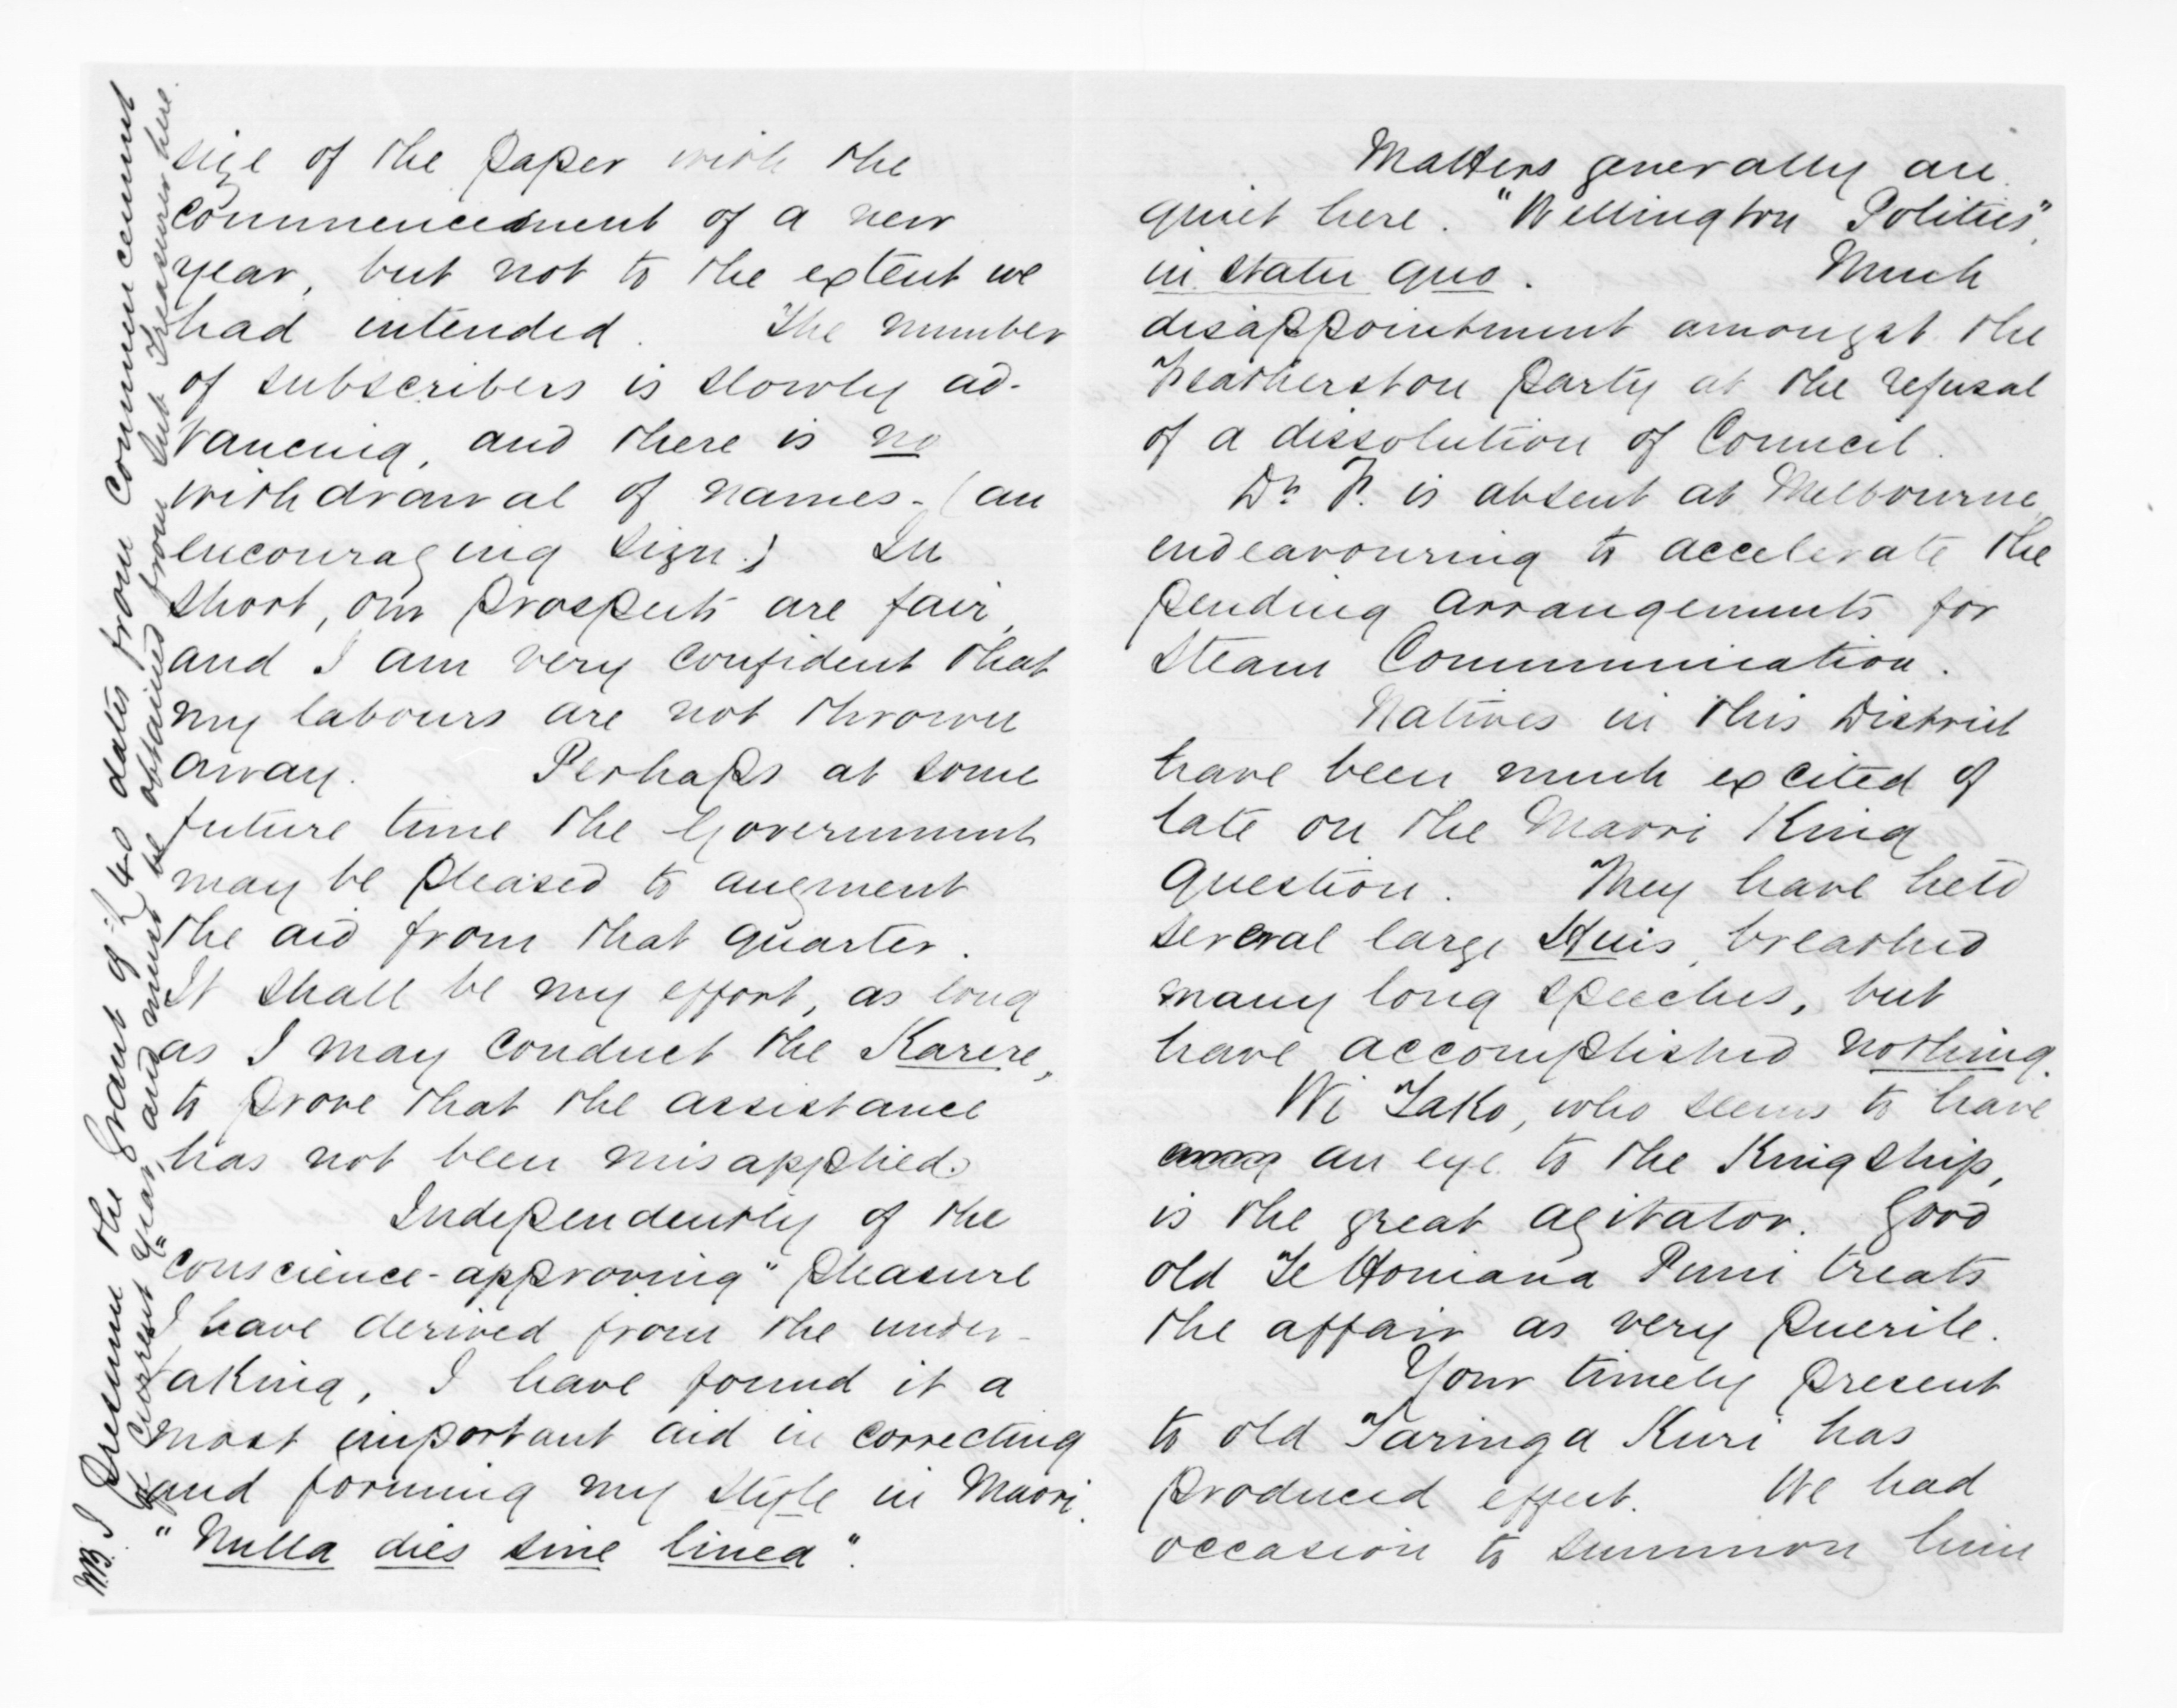 size of the paper with the
commencement of a new
year, but not to the extent we
had intended. The number
of subscribers is slowly ad-
vancing, and there is no
withdrawal of names - (an
encouraging sign.) In
short, our prospects are fair,
and I am very confident that
my labours are not thrown
away. Perhaps at some
future time the Government
may be pleased to augment
the aid from that quarter.
It shall be my effort, as long
as I may conduct the Karere,
to prove that the assistance
has not been misapplied.
Independently of the
"conscience-approving" pleasure
I have derived from the under-
taking, I have found it a
most important aid in correcting
and forming my style in Maori.
"Nulla dies sine linea".
NB. I presume the grant of £40 dates from commencement
of current year, and must be obtained from Sub Treasurer here.
Matters generally are
quiet here. "Wellington Politics",
in statu quo. Much
disappointment amongst the
Featherston party at the refusal
of a dissolution of Council.
Dr. F. is absent at Melbourne
endeavouring to accelerate the
pending arrangements for
Steam Communication.
Natives in this District
have been much excited of
late on the Maori King
question. They have held
several large Huis, breathed
many long speeches, but
have accomplished nothing.
Wi Tako, who seems to have
an eye to the Kingship,
is the great agitator. Good
old Te Honiana Puni treats
the affair as very puerile.
Your timely present
to old Taringa Kuri has
produced effect. We had
occasion to summon him